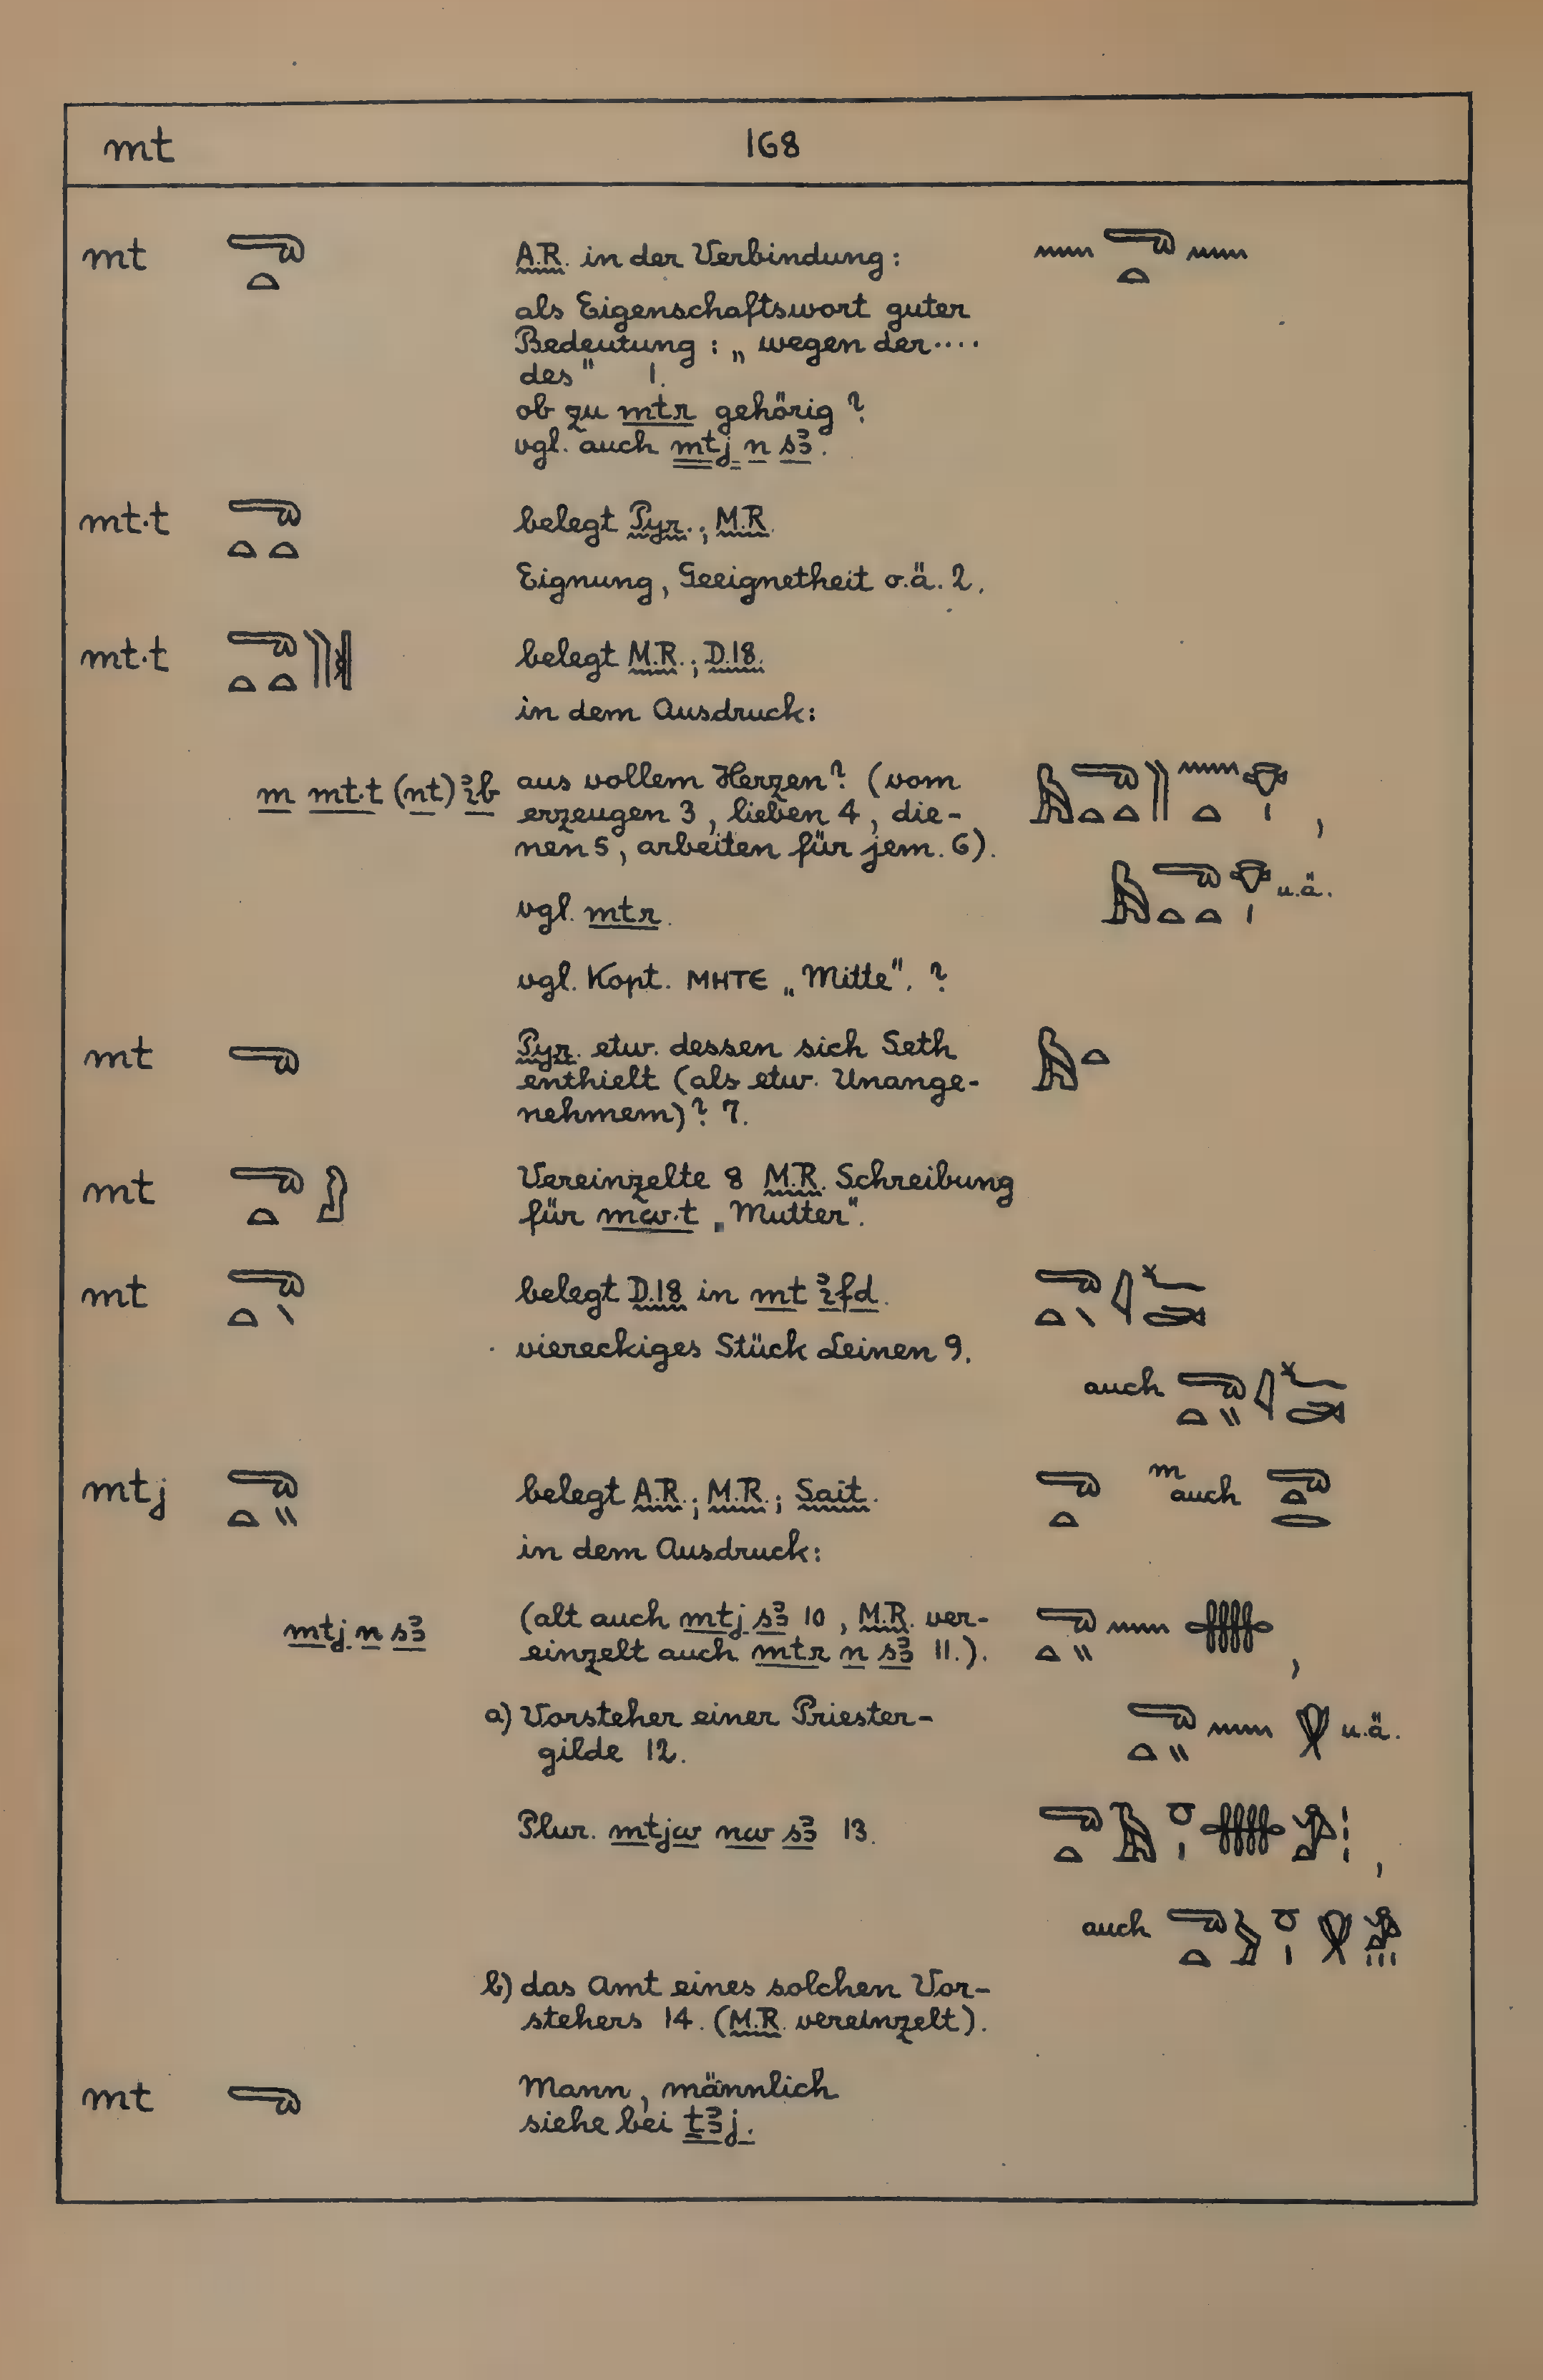 mt 168
mt 𓂸𓏏 A.R. in der Verbindung: 𓈖𓂸𓏏𓈖
als Eigenschaftswort guter
Bedeutung : „ wegen der ....
des" 1.
ob zu mtr gehörig ?
vgl. auch mtj n s3.
mt.t 𓂸𓏏𓏏 belegt Pyr.; M.R.
Eignung, Geeignetheit o.ä. 2.
mt.t belegt M.R.; D.18.
in dem Ausdruck:
m mt.t (nt) ỉb aus vollem Herzen? (vom
erzeugen 3, lieben 4, die-
nen 5, arbeiten für jem. 6).
u.ä.
vgl. mtr.
vgl. Kopt. ⲘⲎⲦⲈ „Mitte". ?
mt 𓂸 Pyr. etw. dessen sich Seth 𓅓𓏏
enthielt (als etw. Unange-
nehmem)? 7.
mt Vereinzelte 8 M.R. Schreibung
für mw.t „Mutter".
mt 𓂸𓏏𓏤 belegt D.18 in mt ỉfd.
viereckiges Stück Leinen 9.
auch
mtj 𓂸𓏏𓏭 belegt A.R.; M.R.; Sait. 𓂸𓏏 m auch 𓂸𓏏𓂋
in dem Ausdruck:
mtj n s3 (alt auch mtj s3 10, M.R. ver-
einzelt auch mtr n s3 11.).
a) Vorsteher einer Priester-
gilde 12.
u.ä.
Plur. mtjw nw s3 13.
auch
b) das Amt eines solchen Vor-
stehers 14. (M.R. vereinzelt).
mt 𓂸 Mann, männlich
siehe bei ṯ3j.